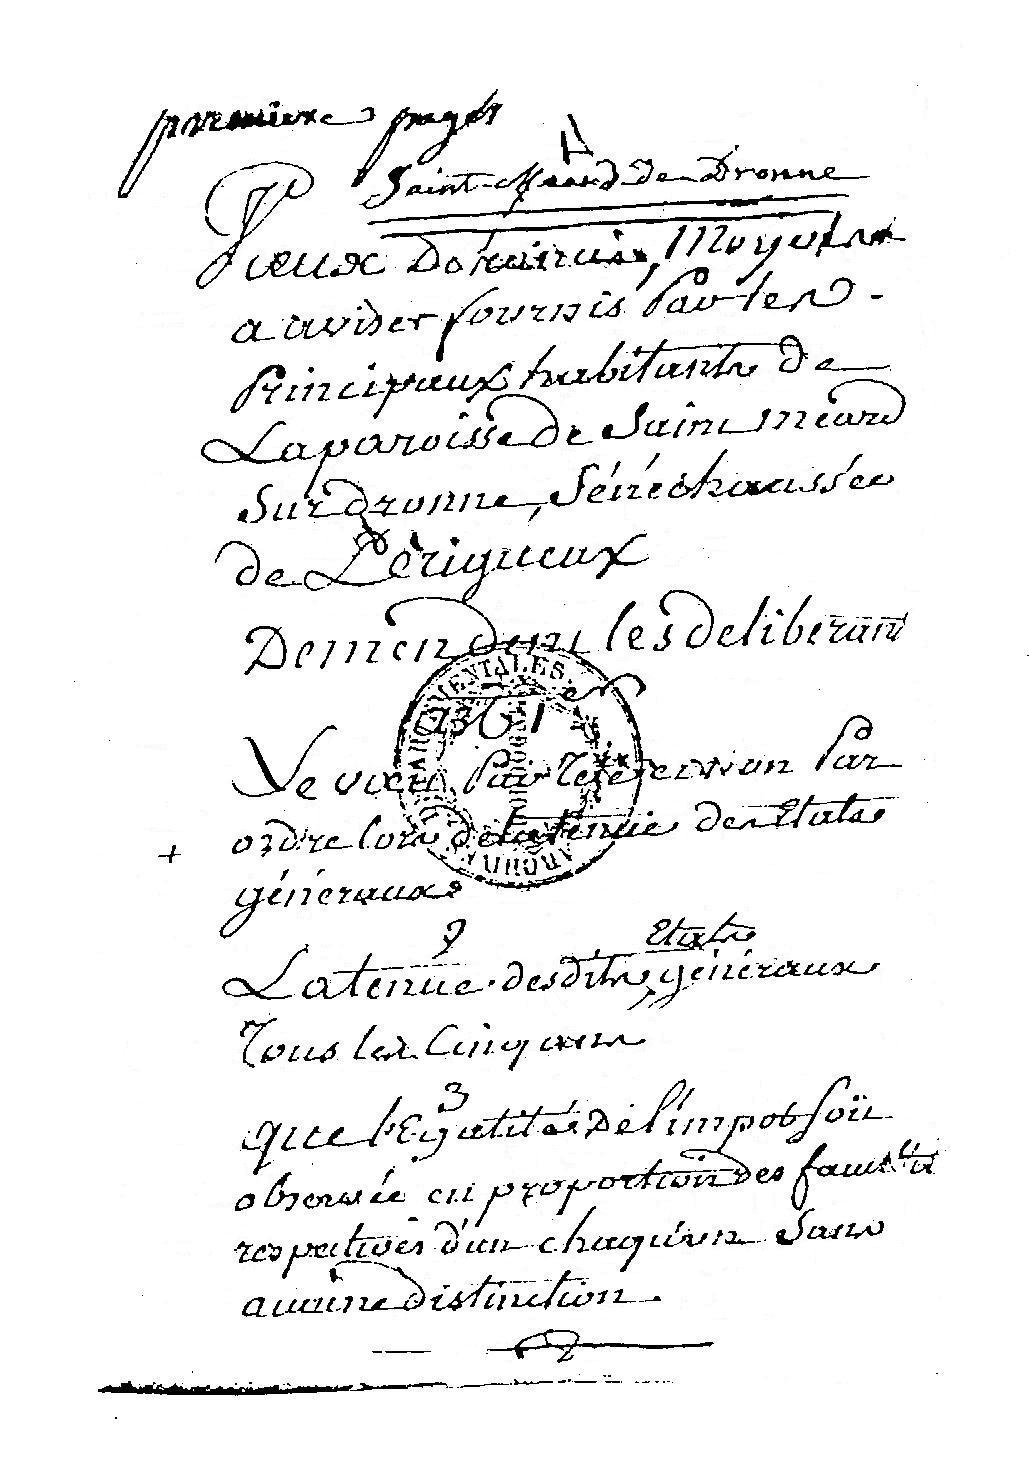 premiere page
Saint Méard de Dronne
Vœux Doleances, Moyens
a aviser fournis Par les
Principaux habitants de
La paroisse de Saint méard
Sur dronne, Sénéchaussée
de Périgueux
Demendent les deliberant
Le vœu Par Tete et non Par
ordre lors de la tenue des Etats
généraux
2
La tenue desdits Etats généraux
Tous les Cinq ans
3
que l'Egalité de l'impot soit
observée en proportion des facultés
respectives d'un chaqu'un Sans
aucune distinction.
ARCHIVES DÉPARTEMENTALES
DORDOGNE